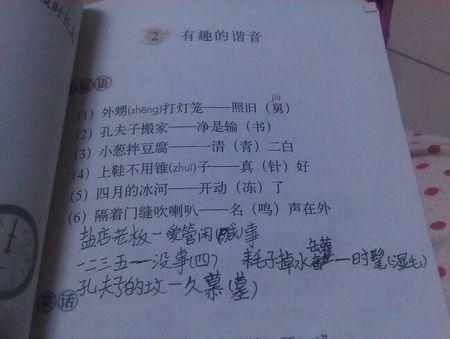 2 有趣的谐音
jiù
(1) 外甥(shēng)打灯笼——照旧（舅）
(2) 孔夫子搬家——净是输（书）
(3) 小葱拌豆腐——一清（青）二白
(4) 上鞋不用锥(zhuī)子——真（针）好
(5) 四月的冰河——开动（冻）了
(6) 隔着门缝吹喇叭——名（鸣）声在外
盐店老板—爱管闲(咸)事
一二三五—没事(四) 耗子掉水缸—时髦(湿毛)
孔夫子的坟—久慕(墓)
笑话